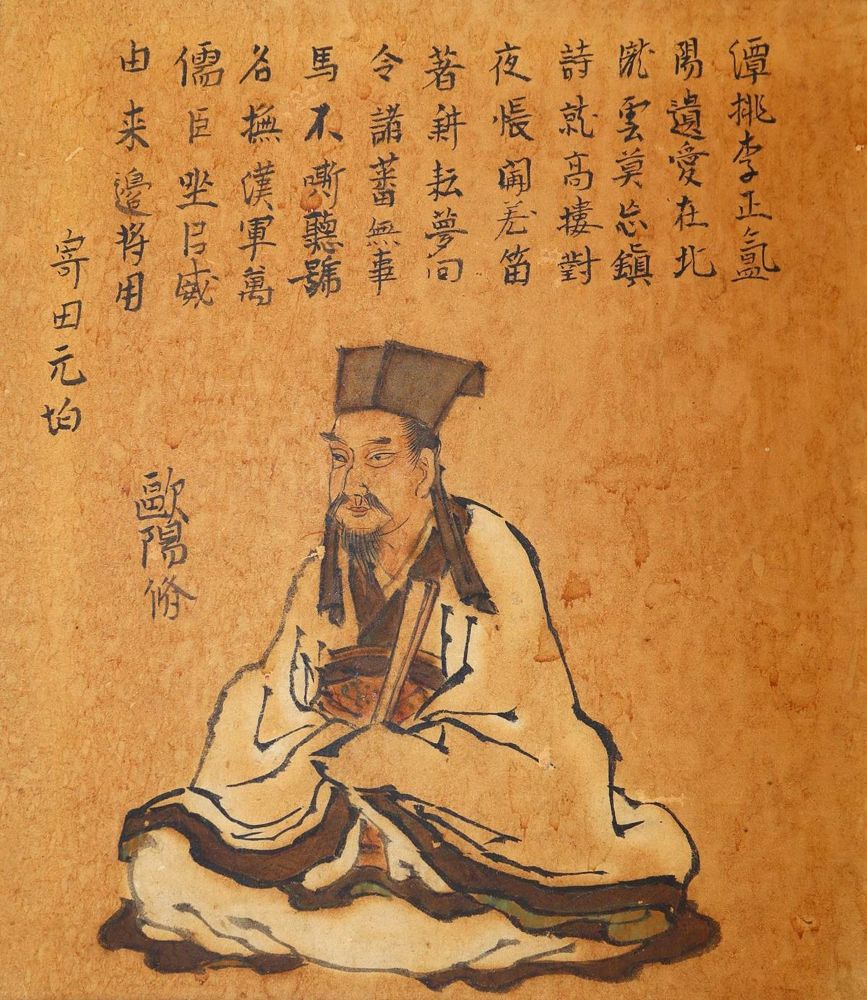 寄田元均
由来邊将用
儒臣坐㠯威
名撫漢軍萬
馬不嘶聽號
令諸蕃無事
著耕耘夢回
夜帳聞羌笛
詩就高樓對
隴雲莫忘鎮
陽遺愛在北
潭桃李正氲
歐陽脩